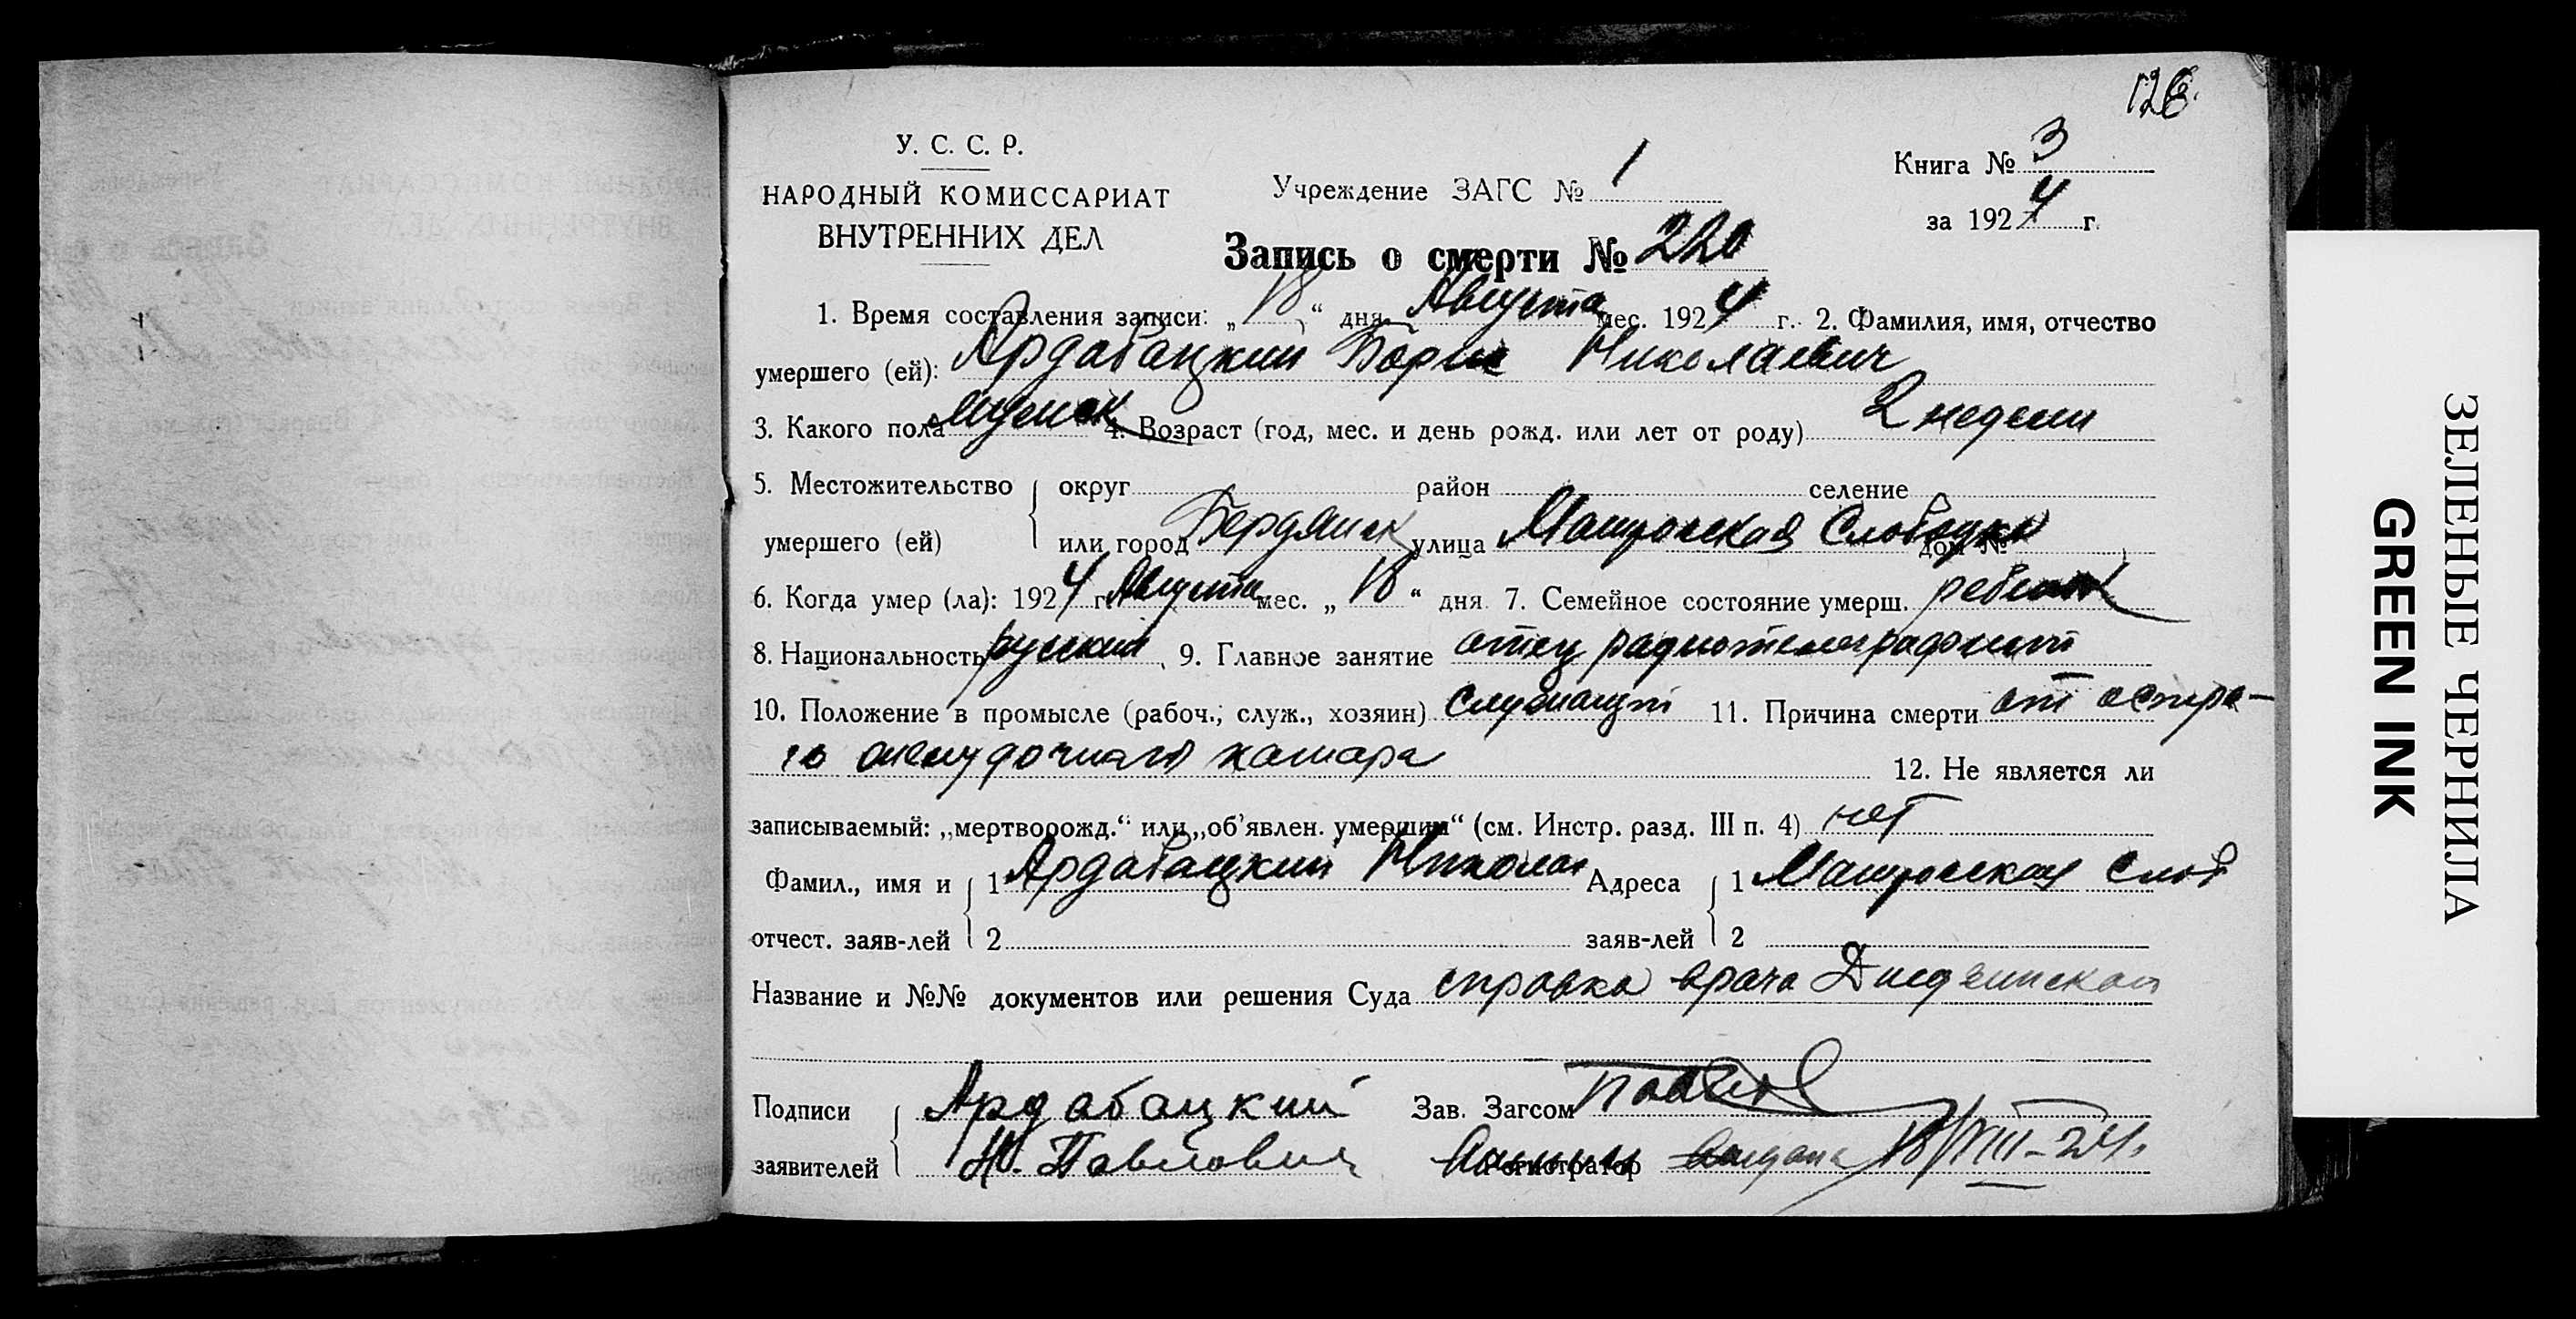 126.
У. С. С. Р.
НАРОДНЫЙ КОМИССАРИАТ
ВНУТРЕННИХ ДЕЛ
Учреждение ЗАГС № 1
Книга № 3
за 1924 г.
Запись о смерти № 220
1. Время составления записи: „18“ дня Августа мес. 1924 г. 2. Фамилия, имя, отчество
умершего (ей): Ардабацкий Борис Николаевич
3. Какого пола мужск 4. Возраст (год, мес. и день рожд. или лет от роду) 2 недели
5. Местожительство округ район селение
умершего (ей) или город Бердянск улица Матросская Слободка дом №
6. Когда умер (ла): 1924 г. Августа мес. „18“ дня 7. Семейное состояние умерш. ребенок
8. Национальность русский 9. Главное занятие отец радиотелеграфист
10. Положение в промысле (рабоч., служ., хозяин) Служащий 11. Причина смерти от остро-
го желудочного катара 12. Не является ли
записываемый: „мертворожд.“ или „об'явлен. умершим“ (см. Инстр. разд. III п. 4) нет
Фамил., имя и 1 Ардабацкий Николай Адреса 1 Матросская Слоб
отчест. заяв-лей 2 заяв-лей 2
Название и №№ документов или решения Суда справка врача
Подписи Ардабацкий Зав. Загсом
заявителей Н. Павлович Регистратор 18/VIII-24г.
ЗЕЛЕНЫЕ ЧЕРНИЛА
GREEN INK